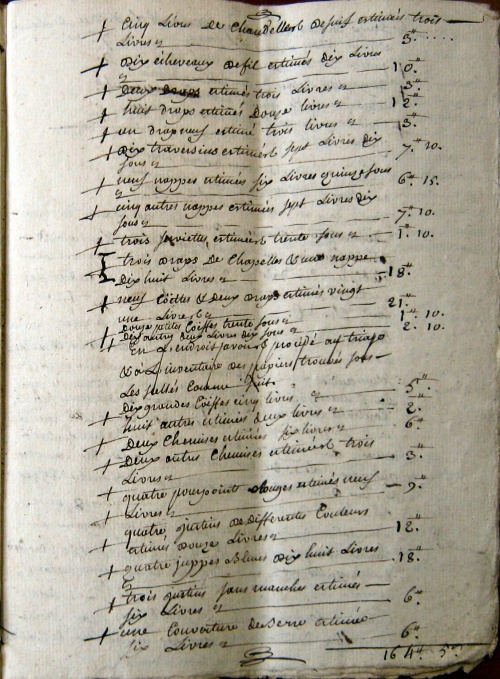 + Cinq Livres de Chandelles de suif estimés trois
Livres 3"
+ dix écheveaux de fil estimés dix Livres
10"
+ deux draps estimés trois Livres 3"
+ huit draps estimés Douze livres 12"
+ un drap neuf estimé trois livres 3"
+ dix traversins estimés sept Livres dix
sous 7" 10.
+ neuf nappes estimées six Livres quinze sous
6" 15.
+ cinq autres nappes estimées sept Livres dix
sous 7" 10.
+ trois serviettes estimées trente sous 1" 10.
trois draps de Chapelles & une nappe
Dix huit Livres 18"
+ neuf Coëttes & deux draps estimés vingt
une Livres 21"
+ Douze petites Coëffes trente sous 1" 10.
+ dix autres deux Livres dix sous 2" 10
En L'endroit avons procédé au triage
& à L'inventaire des papiers trouvés sous
Les scellés Comme suit.
+ Dix grandes Coëffes cinq livres 5"
+ huit autres estimées deux livres 2"
+ Deux Chemises estimées six livres 6"
+ Deux autres Chemises estimées trois
Livres 3"
+ quatre pourpoints rouges estimés neuf
Livres 9"
+ quatre justins de differentes Couleurs
estimés douze Livres 12"
+ quatre juppes blanc dix huit Livres
18"
+ trois justins sans manches estimés
six Livres 6"
+ une Couverture de serre estimée
six Livres 6"
164" 5"